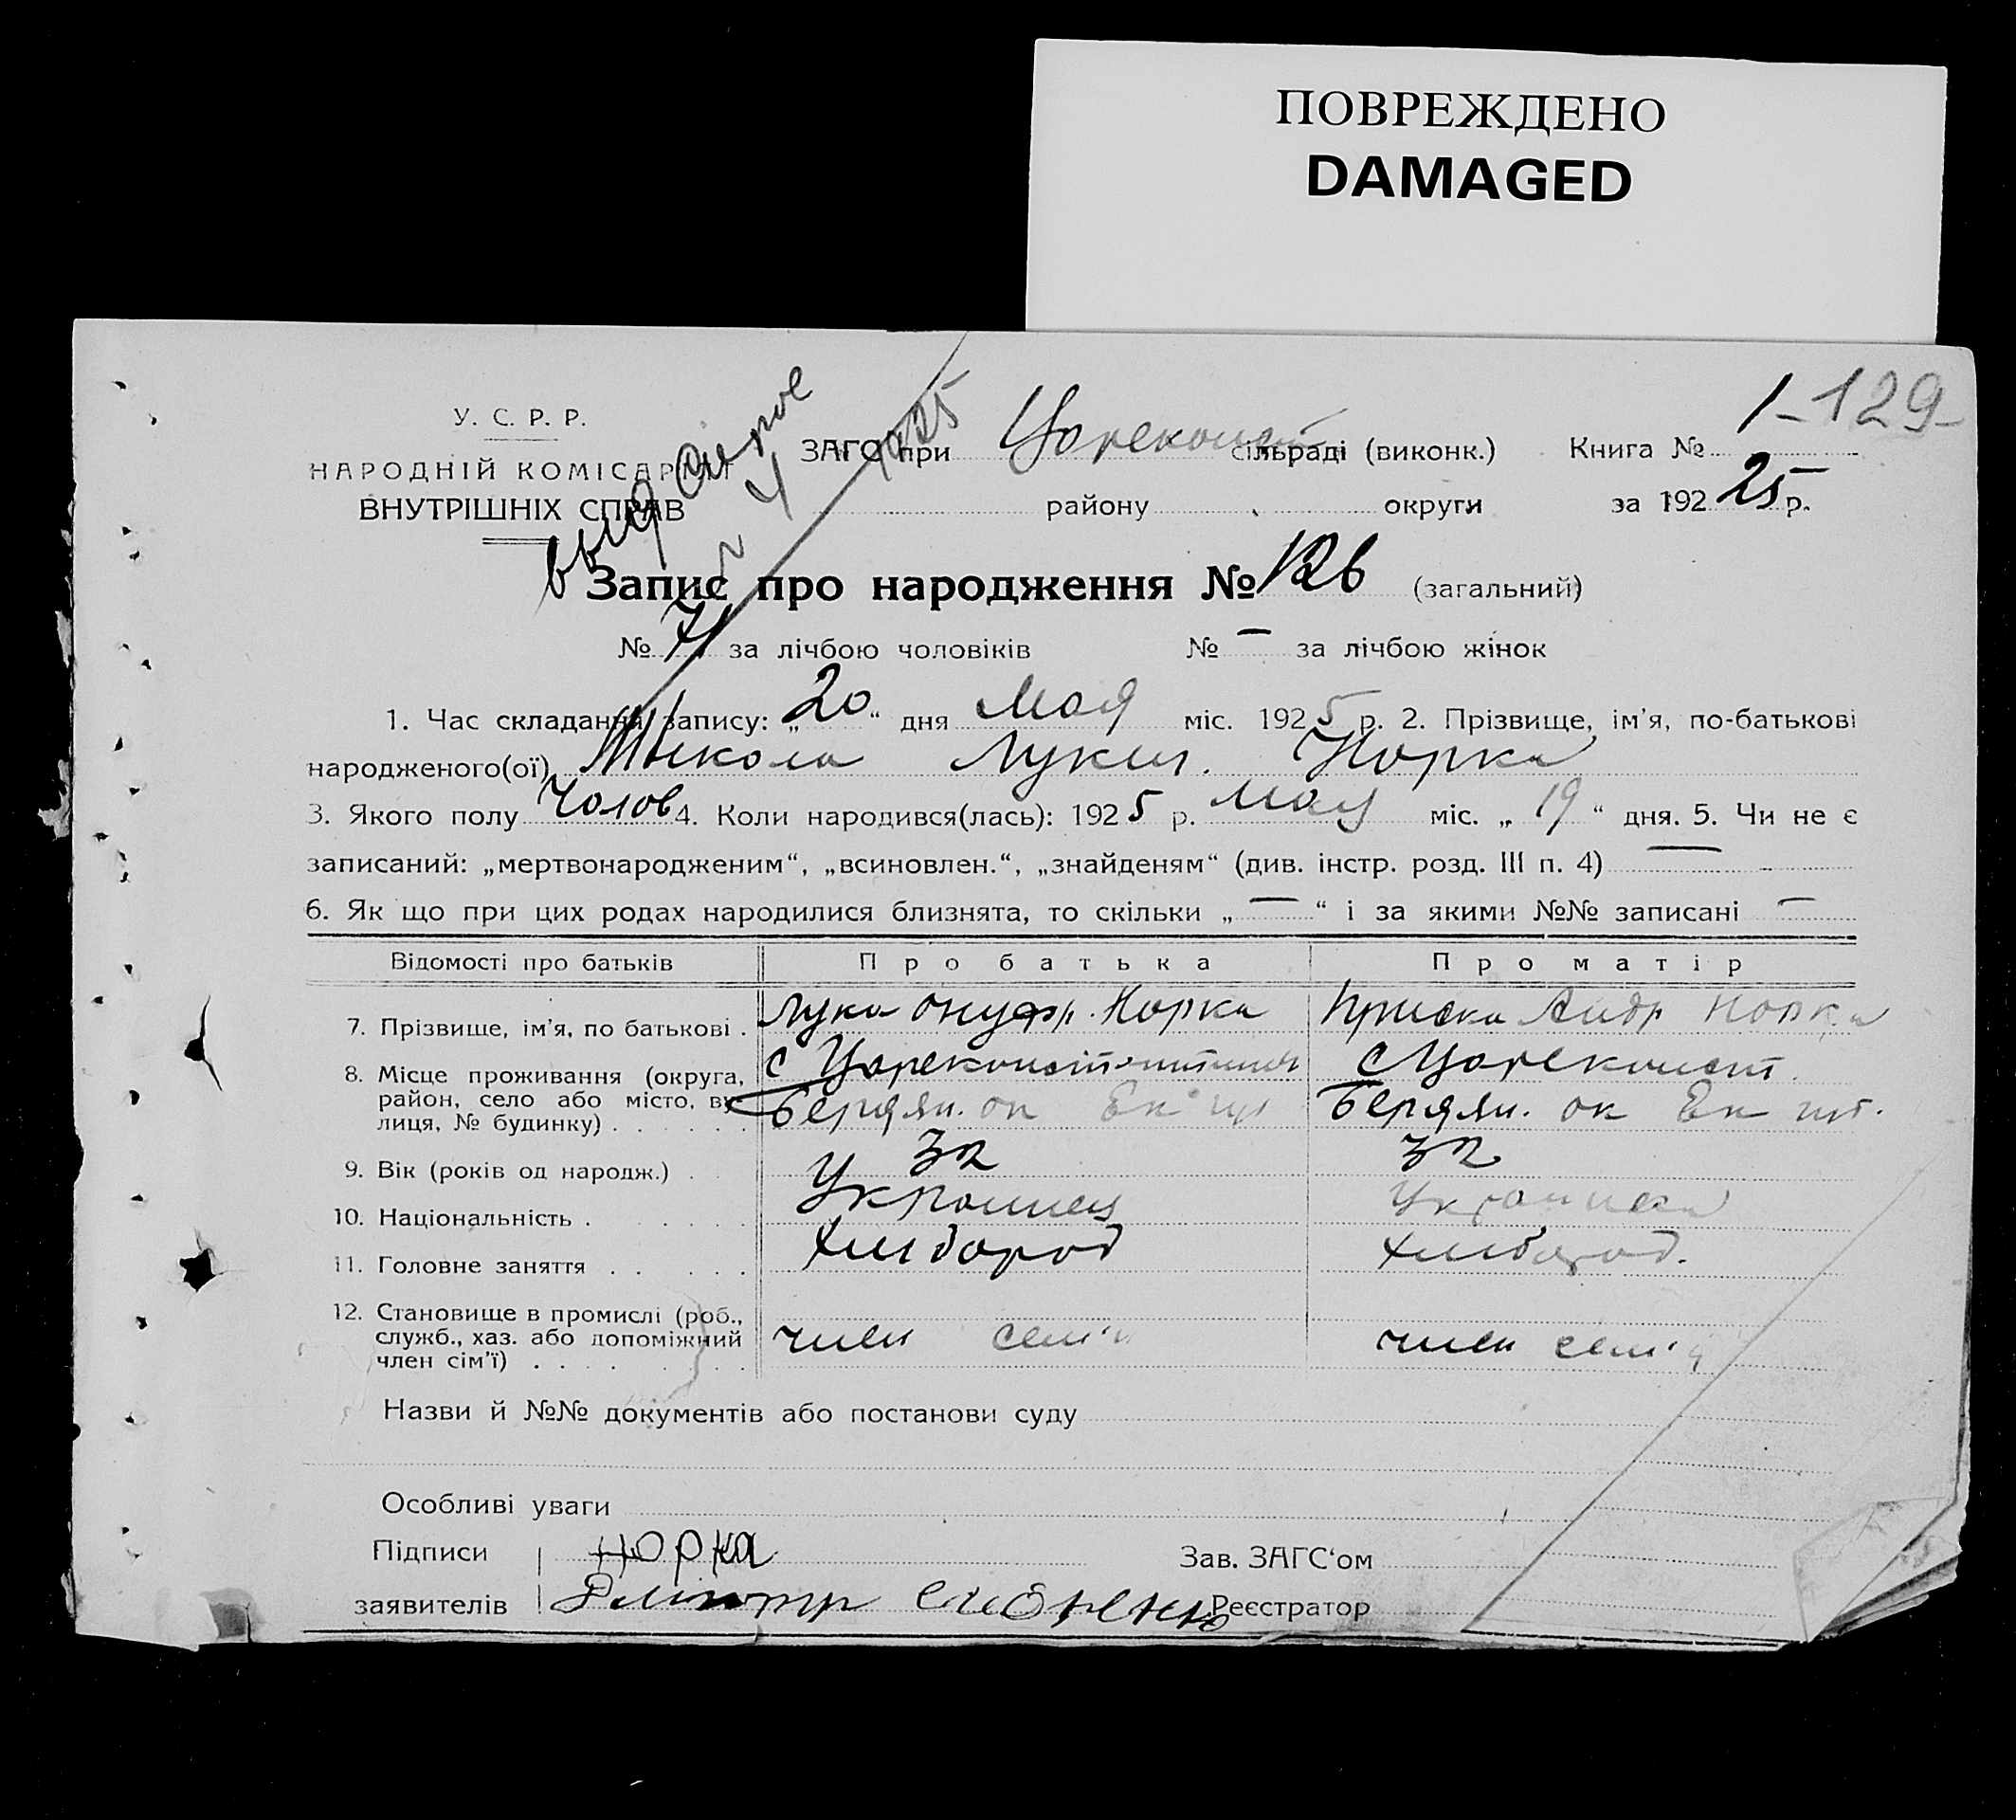 ПОВРЕЖДЕНО
DAMAGED
У. С. Р. Р.
НАРОДНІЙ КОМІСАРІЯТ
ВНУТРІШНІХ СПРАВ
1925
ЗАГС при Цареконст сільраді (виконк.) Книга № 1 -129-
району округи за 1925 р.
Запис про народження № 126 (загальний)
№ 71 за лічбою чоловіків № — за лічбою жінок
1. Час складання запису: „20“ дня Мая міс. 1925 р. 2. Прізвище, ім'я, по-батькові
народженого(ої) Микола Лукич. Норка
3. Якого полу Чолов 4. Коли народився(лась): 1925 р. Мая міс. „19“ дня. 5. Чи не є
записаний: „мертвонародженим“, „всиновлен.“, „знайденям“ (див. інстр. розд. III п. 4) —
6. Як що при цих родах народилися близнята, то скільки „—“ і за якими №№ записані —
Відомості про батьків Про батька Про матір
7. Прізвище, ім'я, по батькові . Лука Онуфр. Норка Приська Андр Норка
8. Місце проживання (округа, район, село або місто, вулиця, № будинку) . . . . . .
с Цареконстантинов с Цареконст.
Бердян. ок Ек Бердян. ок Ек
9. Вік (років од народж.) . 32 32
10. Національність . . . . . Українец Українка
11. Головне заняття . . . . . Хлибороб Хлибороб.
12. Становище в промислі (роб., служб., хаз. або допоміжний член сім'ї) . . . . . .
член сем'и член сем'и
Назви й №№ документів або постанови суду
Особливі уваги
Підписи Норка Зав. ЗАГС'ом
заявителів Дмитр Реєстратор